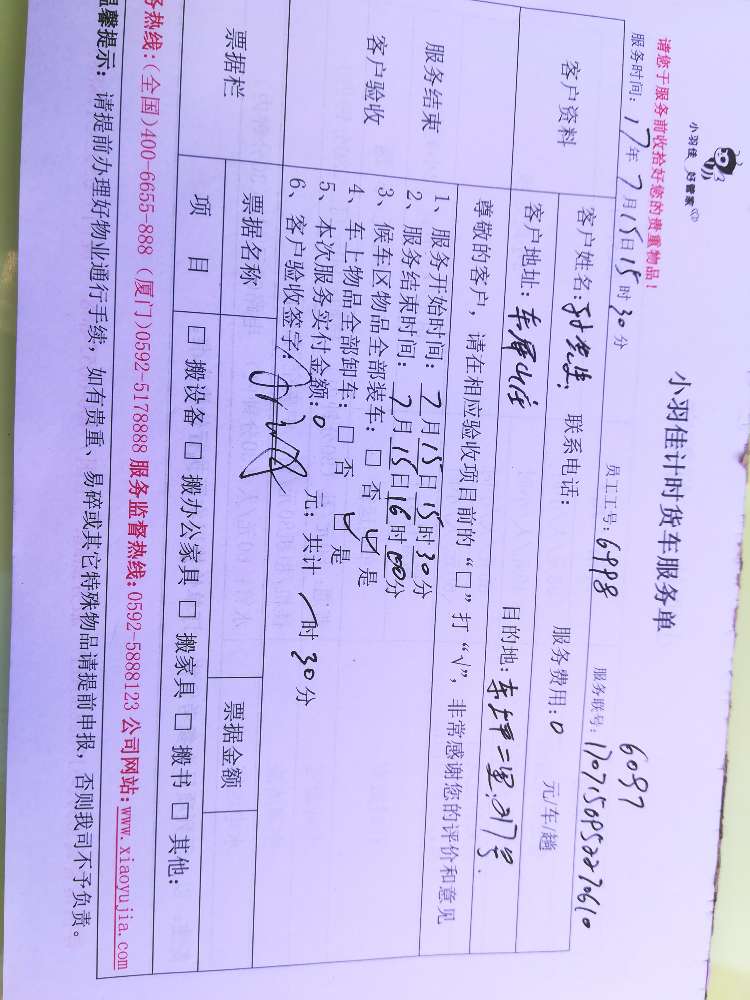 小羽佳 好管家
小羽佳计时货车服务单
6097
请您于服务前收拾好您的贵重物品！
服务时间：17年7月15日15时30分 员工工号：6998 服务联号：
客户资料
客户姓名： 先生 联系电话： 服务费用：0 元/车/趟
客户地址： 目的地：
服务结束
客户验收
尊敬的客户，请在相应验收项目前的“□”打“√”，非常感谢您的评价和意见
1、服务开始时间：7月15日15时30分
2、服务结束时间：7月15日16时00分
3、候车区物品全部装车：□ 否 ☑ 是
4、车上物品全部卸车：□ 否 ☑ 是
5、本次服务实付金额：0 元；共计 时30分
6、客户验收签字：
票据栏 票据名称 票据金额
项 目 □ 搬设备 □ 搬办公家具 □ 搬家具 □ 搬书 □ 其他：
务热线：(全国)400-6655-888 (厦门)0592-5178888 服务监督热线：0592-5888123 公司网站：www.xiaoyujia.com
温馨提示：请提前办理好物业通行手续，如有贵重、易碎或其它特殊物品请提前申报，否则我司不予负责。